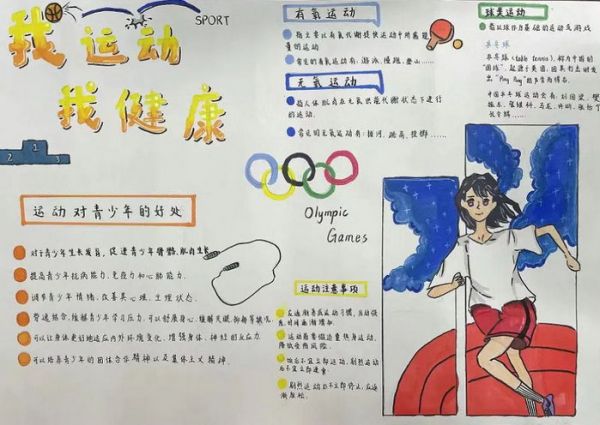 我运动
SPORT
我健康
2
1
3
运动对青少年的好处
对于青少年生长发育,促进青少年骨骼、肌肉生长
提高青少年抗病能力、免疫力和心肺能力.
调节青少年情绪,改善其心理、生理状态.
劳逸结合,缓解青少年学习压力,可以舒展身心,缓解失眠、抑郁等情况
可以让身体更好地适应内外环境变化,增强身体、神经的反应力
可以培养青少年的团体合作精神以及集体主义精神.
有氧运动
指主要以有氧代谢提供运动中所需能
量的运动
常见的有氧运动有:游泳、慢跑、登山......
无氧运动
指人体肌肉在无氧供能代谢状态下进行
的运动.
常见的无氧运动有:拔河、跳高、投掷......
Olympic
Games
运动注意事项
应逐渐养成运动习惯,
运动前要做适量热身运动,
降低受伤风险.
饭后不宜立即运动,剧烈运动
后不宜立即进食.
剧烈运动后不可立即停止,应逐
渐放松.
球类运动
指以球作为基础的运动或游戏
乒乓球
乒乓球(table tennis),称为中国的
"国球",起源于英国,因其打击时发
出"Ping Pang"的声音而得名.
中国乒乓球运动员有:刘国梁、樊
振东、张继科、马龙、许昕、